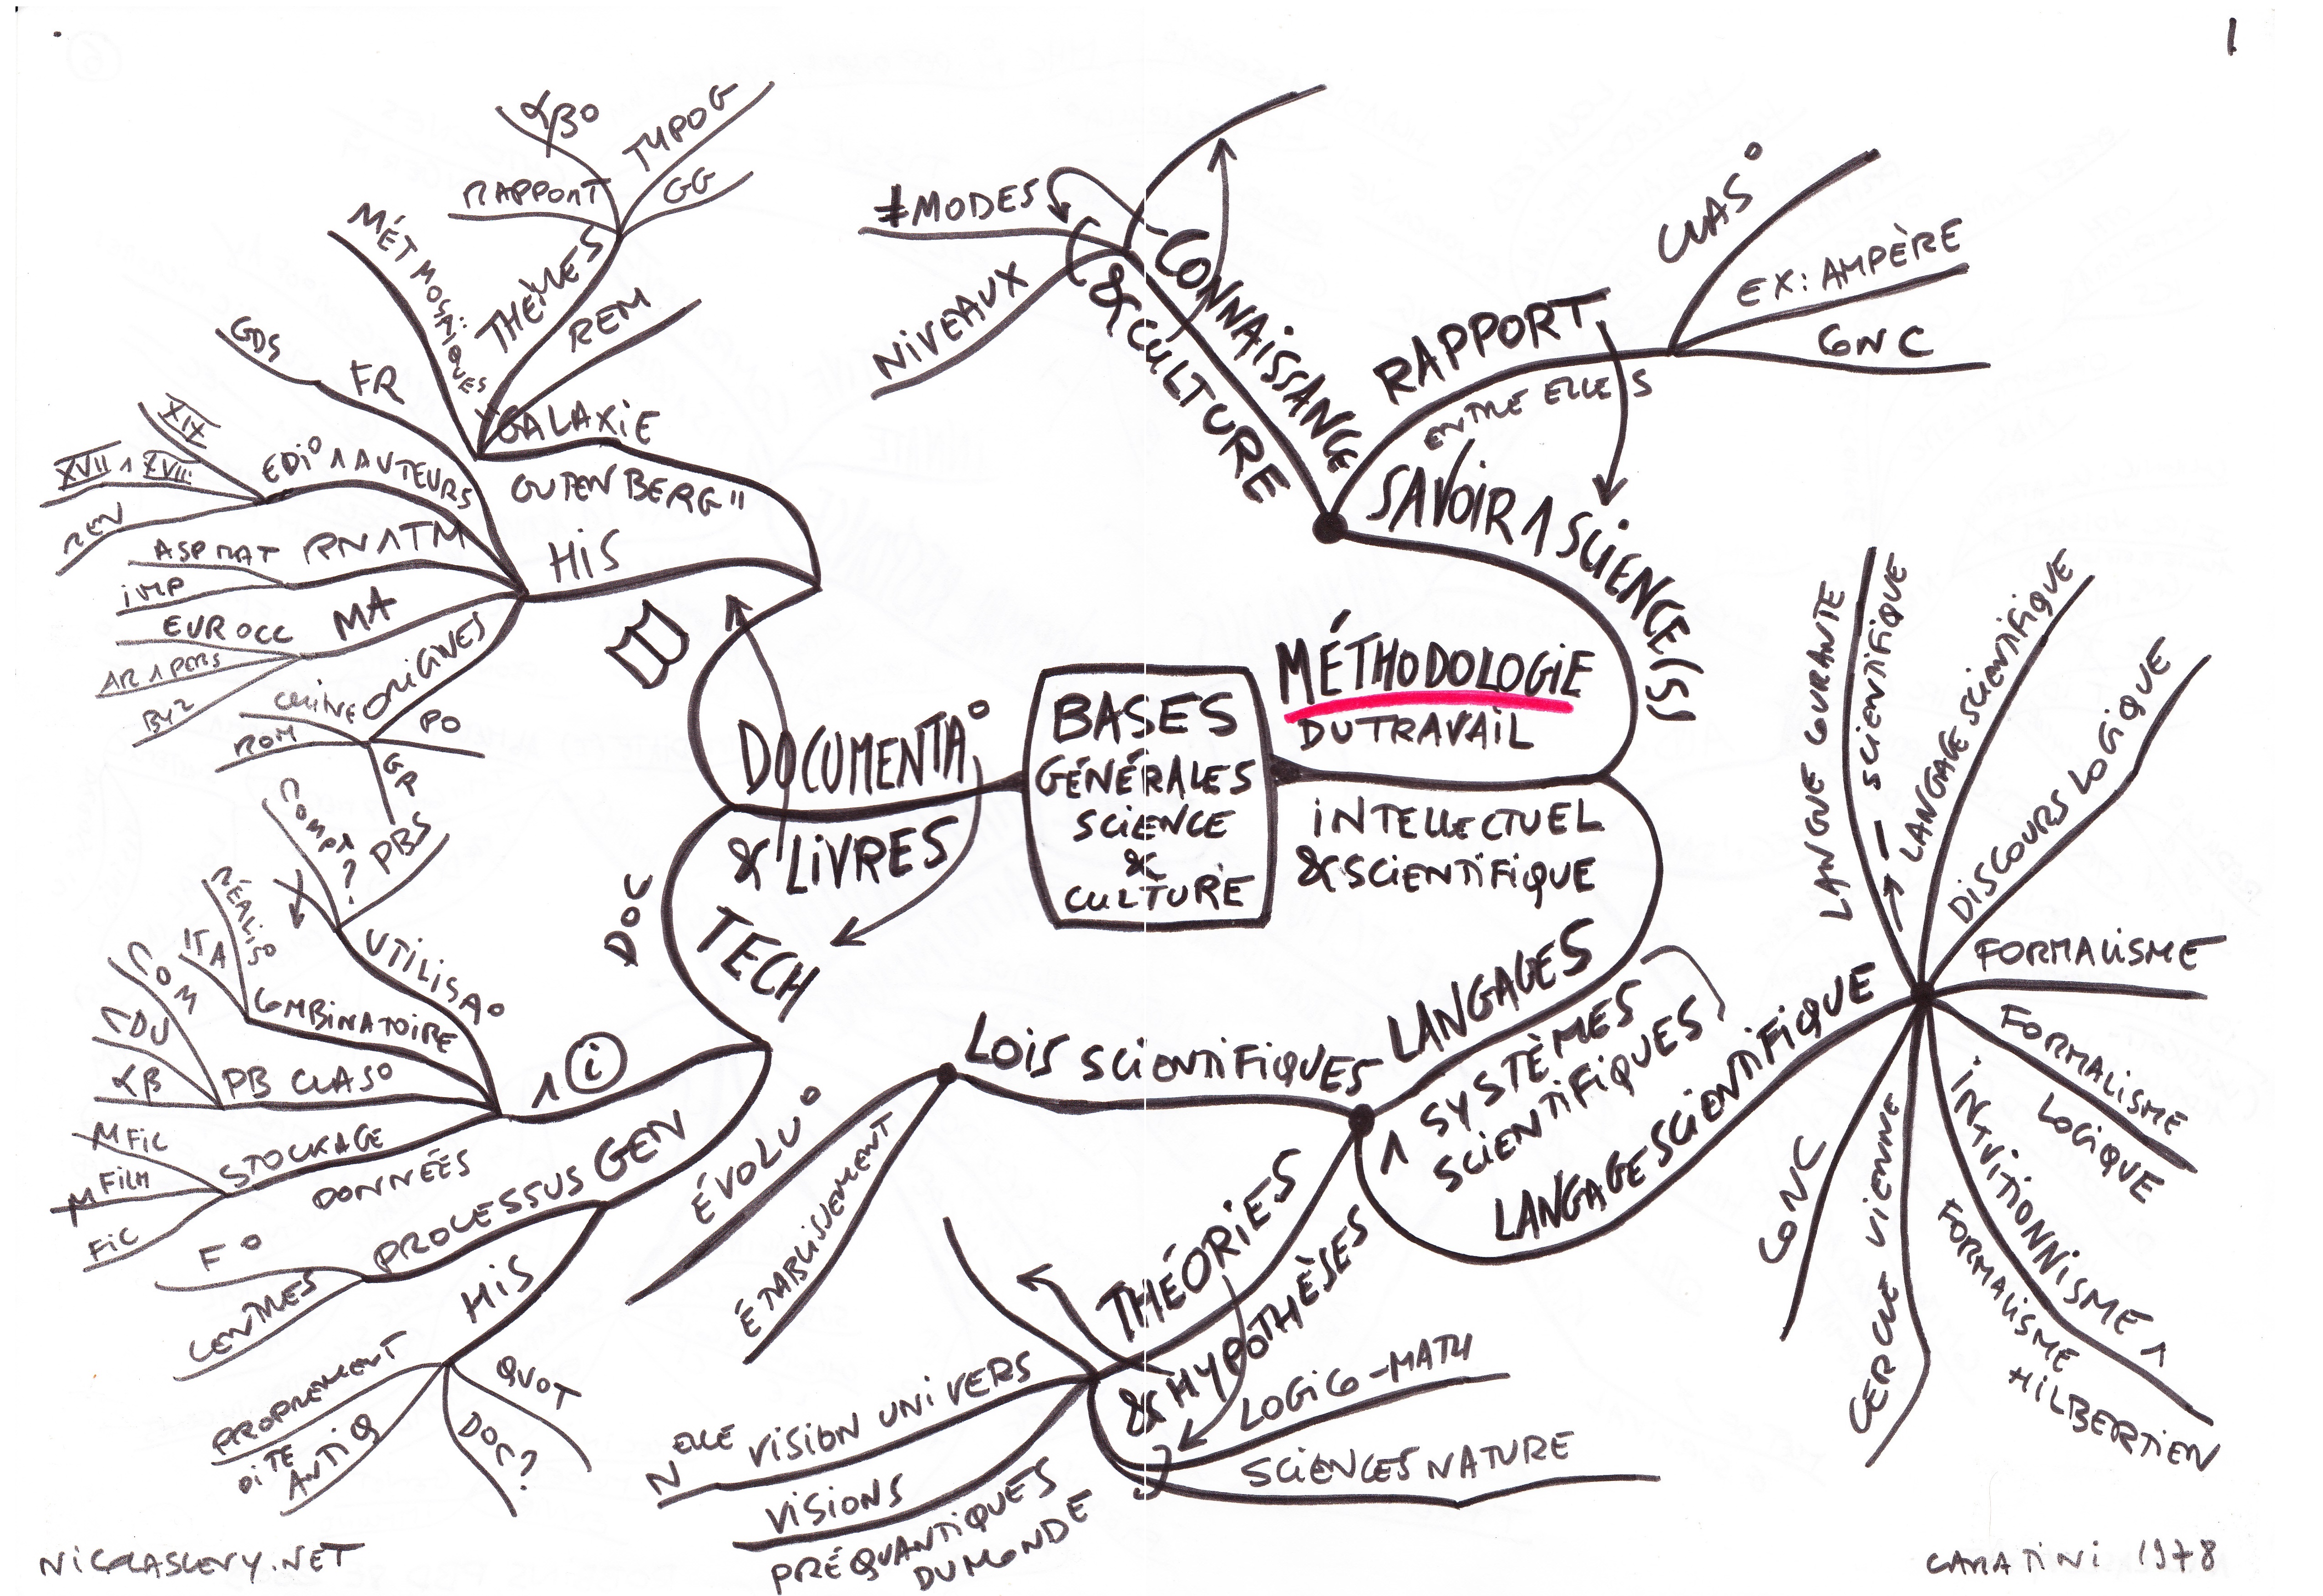 1
BASES
GÉNÉRALES
SCIENCE
&
CULTURE
MÉTHODOLOGIE
DU TRAVAIL
INTELLECTUEL
& SCIENTIFIQUE
SAVOIR 1 SCIENCE(S)
CONNAISSANCE
& CULTURE
≠ MODES
NIVEAUX
RAPPORT
ENTRE ELLES
CLAS°
EX: AMPÈRE
CNC
LANGAGES
1 SYSTÈMES
SCIENTIFIQUES
LANGAGE SCIENTIFIQUE
LANGUE COURANTE
→ SCIENTIFIQUE
LANGAGE SCIENTIFIQUE
DISCOURS LOGIQUE
FORMALISME
FORMALISME
LOGIQUE
INTUITIONNISME 1
FORMALISME
HILBERTIEN
CERCLE VIENNE
CONC
THÉORIES
& HYPOTHÈSES
LOGICO-MATH
SCIENCES NATURE
VISIONS
PRÉQUANTIQUES
DU MONDE
NELLE VISION UNIVERS
LOIS SCIENTIFIQUES
ÉTABLISSEMENT
ÉVOLU°
DOCUMENTA°
& LIVRES
GALAXIE
GUTENBERG"
MÉT MOSAÏQUES
THÈMES
RAPPORT
αβ°
TYPOG
GG
REM
HIS
FR
GDS
EDI° 1 AUTEURS
XIX
XVII 1 XVIII
REN
RN 1 TM
ASP MAT
IMP
MA
EUR OCC
AR 1 PERS
BYZ
ORIGINES
CHINE
ROM
GR
PO
DOC
TECH
1 i
UTILISA°
COMPX
?
PBS
COMBINATOIRE
RÉALIS°
ITA
PB CLAS°
COM
CDU
αB
STOCKAGE
DONNÉES
MFIC
MFILM
FIC
GEN
PROCESSUS
F°
CENTRES
HIS
PROPREMENT
DITE
ANTIQ
DOC?
QUOT
NICOLASLEVY.NET
CARATINI 1978